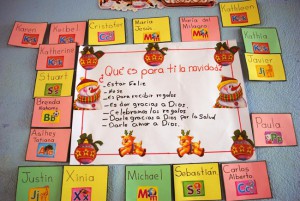 Karen
Keibel
Cristofer
María
Jesús
María del
Milagro
Kathleen
Katherine
Kathia
Stuart
Javier
Jj
Brenda
Bb
Ashley
Tatiana
Paula
¿Qué es para ti la navidad?
Estar Feliz
Es para recibir regalos
Es dar gracias a Dios
Celebramos los regalos
Darle gracias a Dios por la Salud
Darle amor a Dios.
Justin
Xinia
Michael
Mm
Sebastián
Ss
Carlos
Alberto